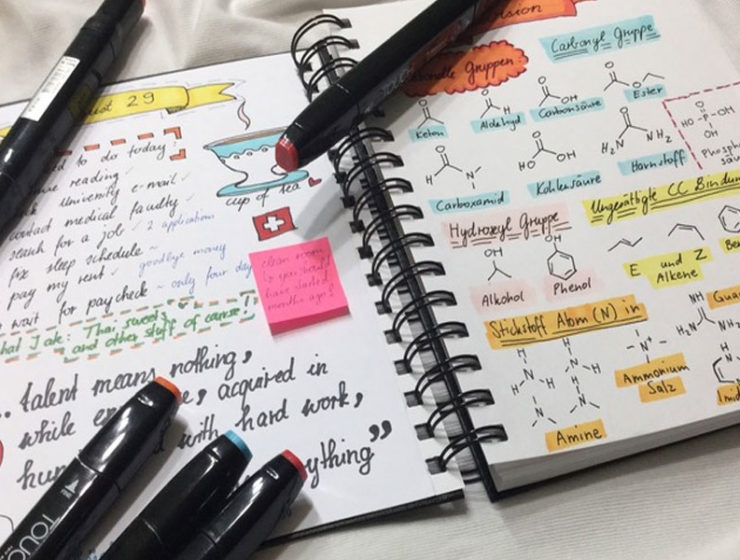 29
to do today:
reading ✓
University e-mail ✓
contact medical faculty ✓
search for a job ✓ 2 applications
fix sleep schedule ~
pay my rent ✓ goodbye money
wait for paycheck ~ only four day
Thai sweets
and other stuff of course!
cup of tea
clean room
months ago!
„ talent means nothing,
while acquired in
with hard work,
ything”
TOUC
Gruppen
Carbonyl Gruppe
Keton
Aldehyd
H
OH
Carbonsäure
O
Ester
O
H
N
Carboxamid
O
HO OH
Kohlensäure
O
H₂N NH₂
Harnstoff
O
HO-P-OH
OH
Phosph
säu
Hydroxyl Gruppe
OH
Alkohol
OH
Phenol
Ungesättigte CC Bindun
E und Z
Alkene
Be
Stickstoff Atom (N) in
H
H N H
H N
N
N
Amine
N⁺
Ammonium
Salz
NH
H₂N NH₂
Gua
Imid